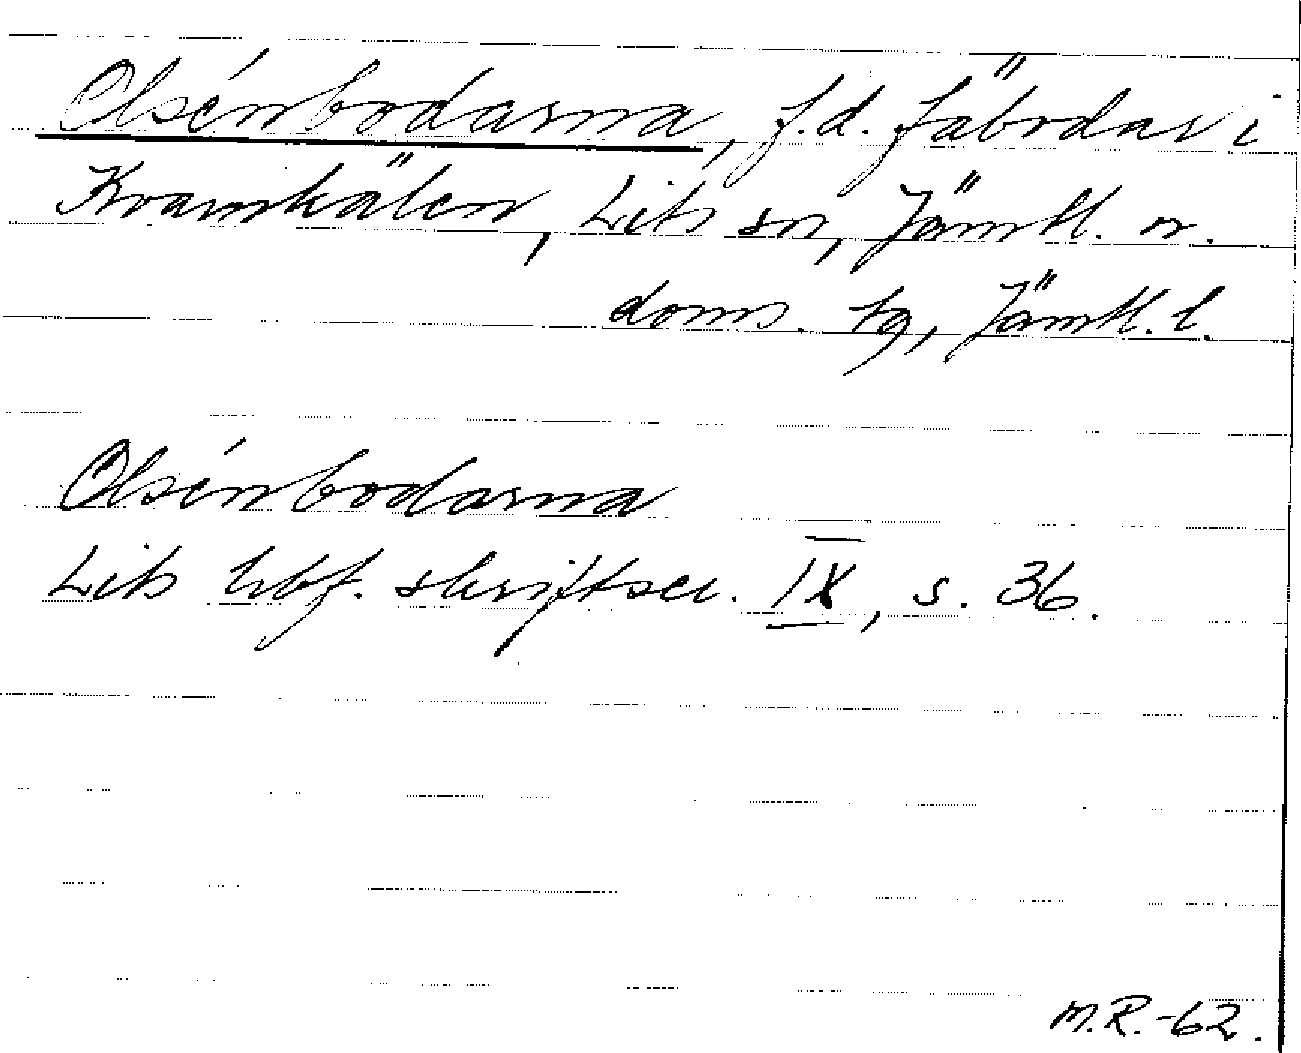 Olsénbodarna, f.d. fäbodar i
Kvarnkälen, Lits sn, Jämtl. n.
doms. tg, Jämtl. l.
Olsénbodarna
Lits hbf. skriftser. IX, s. 36.
M.R.-62.